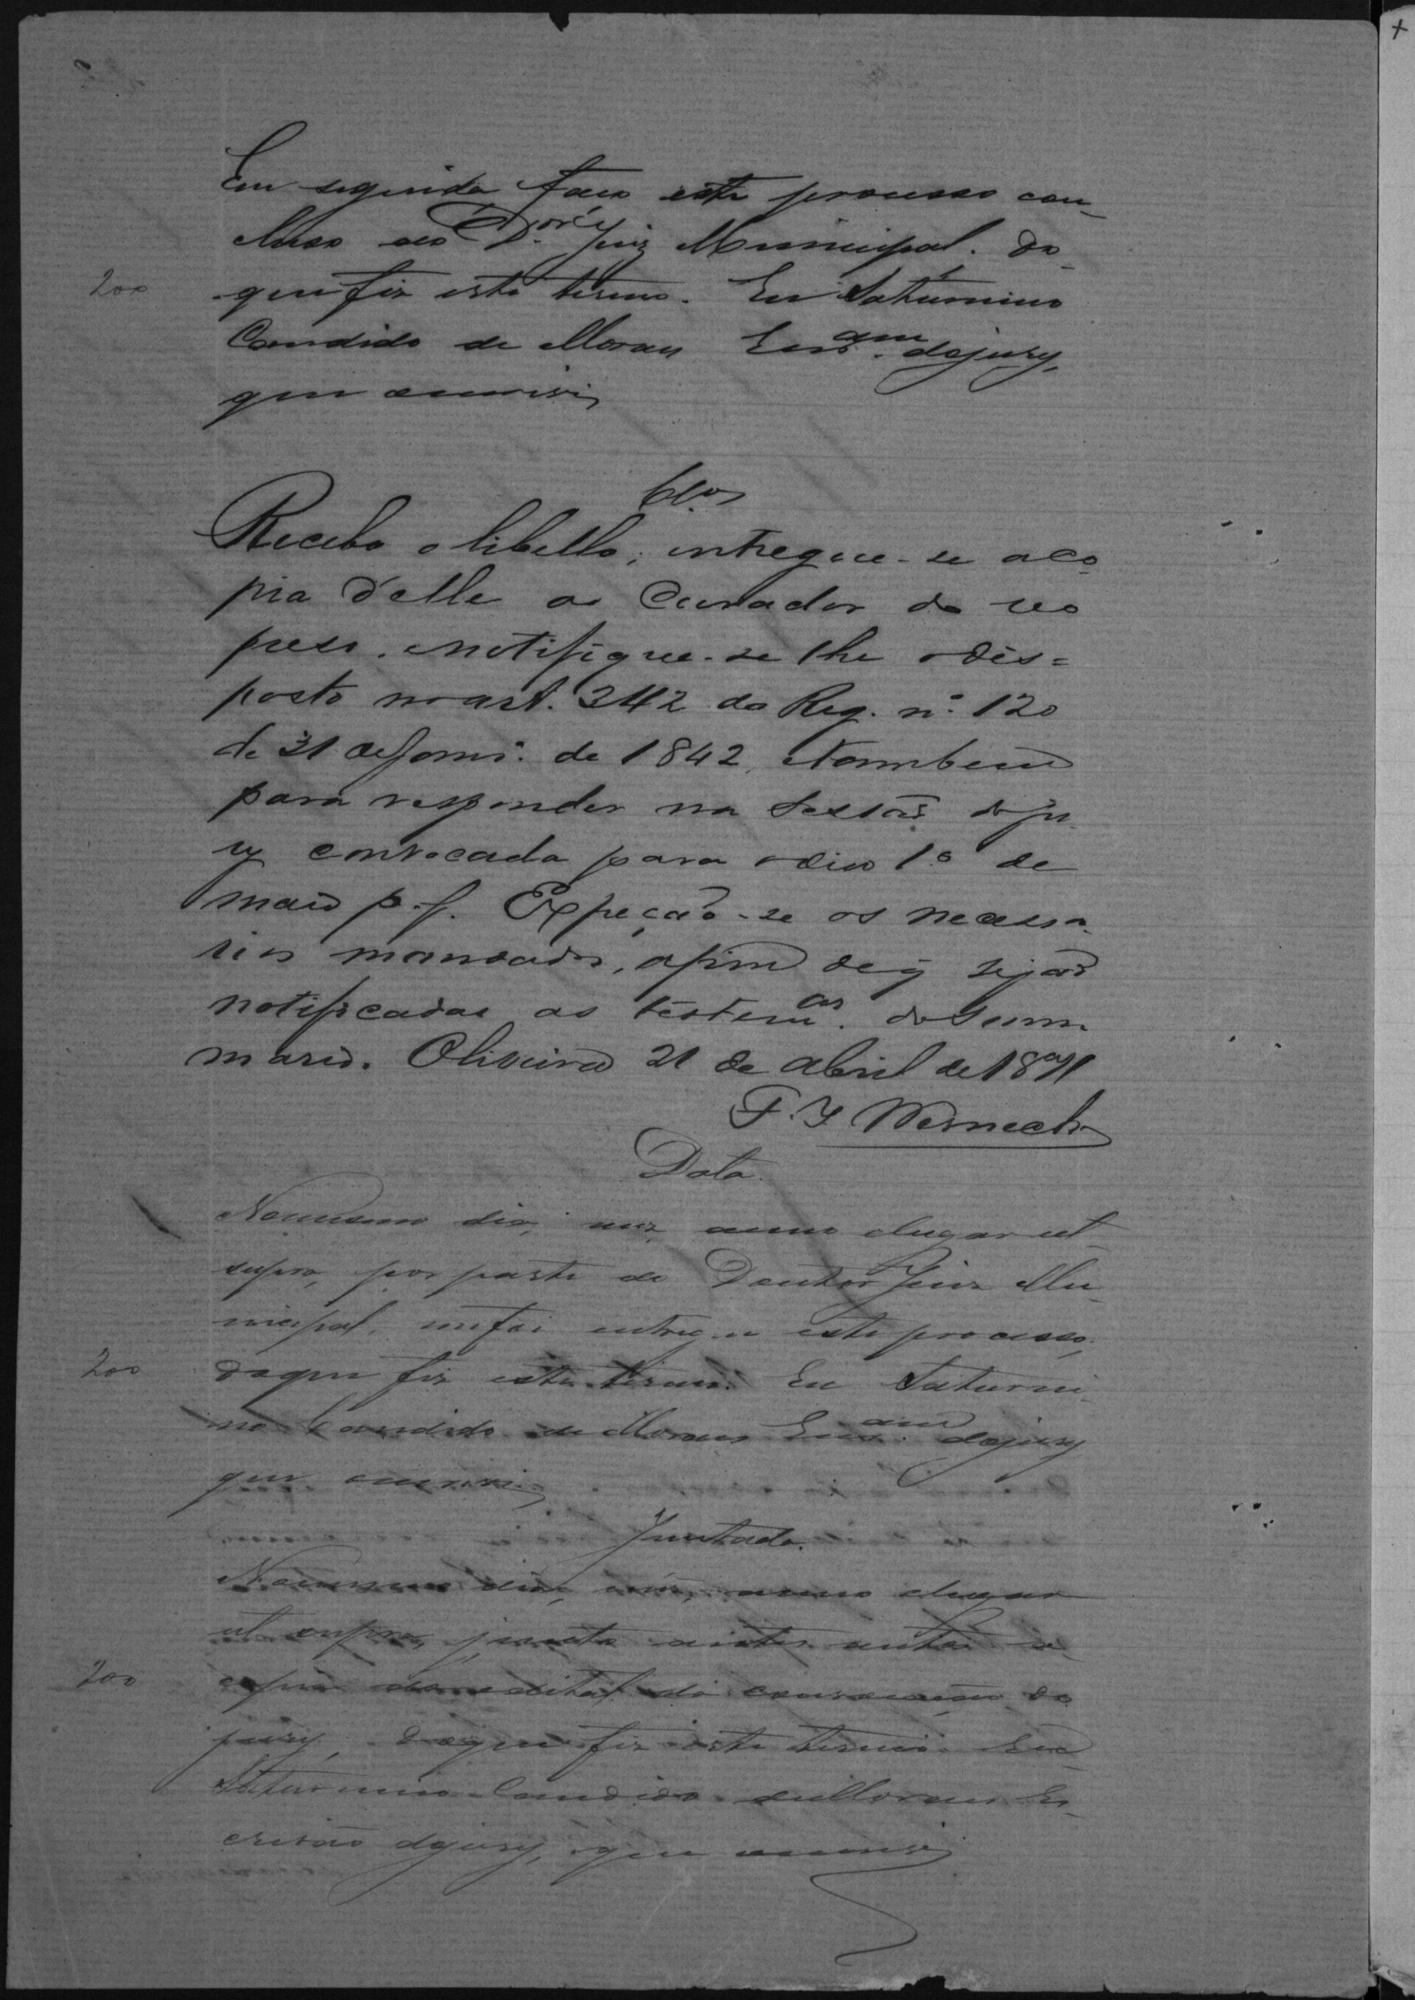 Em seguida faço este processo con-
cluso ao D.or Juiz Municipal. Do
200
que fiz este termo. Eu Saturnino
Candido de Moraes Escr.am do jury,
que escrevi
Cl.os
Recebo o libello; entregue-se a co-
pia d'elle ao Curador do reo
preso. notifique-se lhe o dis=
posto no art. 342 do Reg. nº 120
de 31 de Janrº. de 1842, e tambem
para responder na sessão do ju-
ry convocada para o dia 1º de
maio p. f. Expeção-se os necessa-
rios mandados, afim de q sejão
notificadas as testemas. do sum-
mario. Oliveira 21 de abril de 1871
F. I Werneck
Data
No mesmo dia, mez, anno e lugar ut
supra, por parte do Doutor Juiz Mu-
nicipal, me foi entregue este processo;
200
do que fiz este termo. Eu Saturni-
no Candido de Moraes Escr.am do jury
que escrevi
Juntada.
No mesmo dia, mez, anno e lugar
ut supra, junto a estes autos a
200
copia do edital da convocação do
jury, do que fiz este termo. Eu
Saturnino Candido de Moraes Es-
crivão do jury, que escrevi